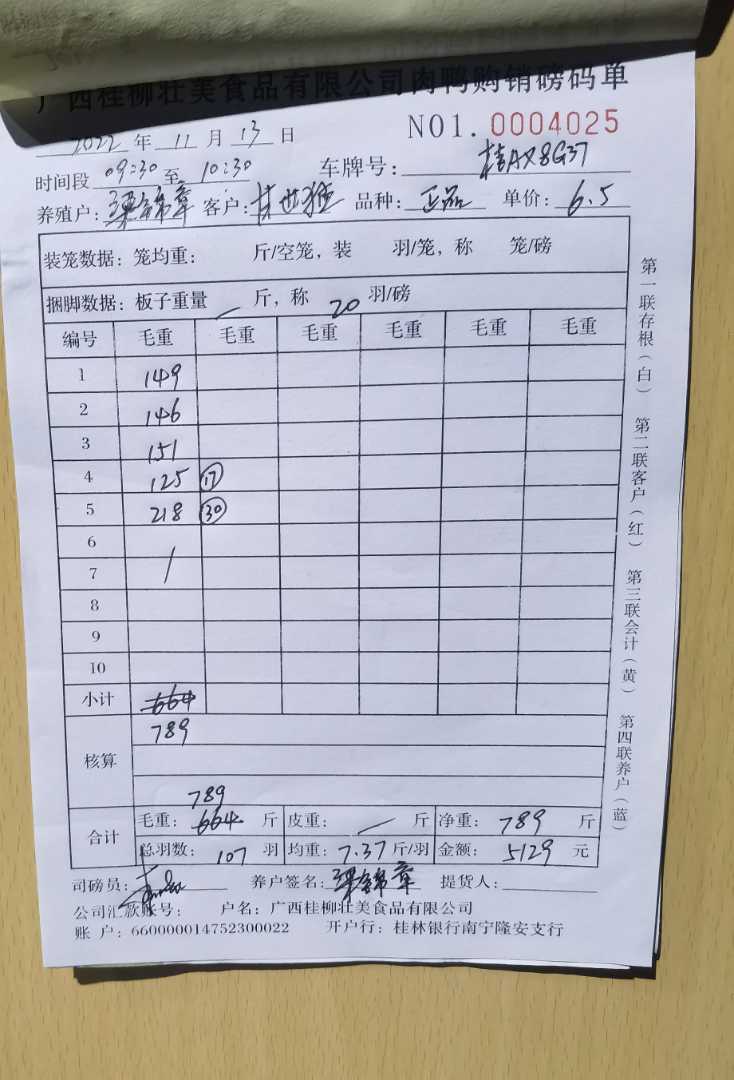 广西桂柳壮美食品有限公司肉鸭购销磅码单
2022 年 11 月 13 日 NO1. 0004025
时间段 09:30 至 10:30 车牌号: 桂AX8G37
养殖户: 梁锦章 客户: 品种: 正品 单价: 6.5
装笼数据: 笼均重: 斤/空笼, 装 羽/笼, 称 笼/磅
捆脚数据: 板子重量 — 斤, 称 20 羽/磅
编号 毛重 毛重 毛重 毛重 毛重 毛重
1 149
2 146
3 151
4 125 ⑰
5 218 ㉚
6
7 /
8
9
10
小计 664
789
核算
789
合计 毛重: 664 斤 皮重: — 斤 净重: 789 斤
总羽数: 107 羽 均重: 7.37 斤/羽 金额: 5129 元
司磅员: 养户签名: 梁锦章 提货人:
公司汇款账号: 户名: 广西桂柳壮美食品有限公司
账 户: 660000014752300022 开户行: 桂林银行南宁隆安支行
第一联存根(白) 第二联客户(红) 第三联会计(黄) 第四联养户(蓝)